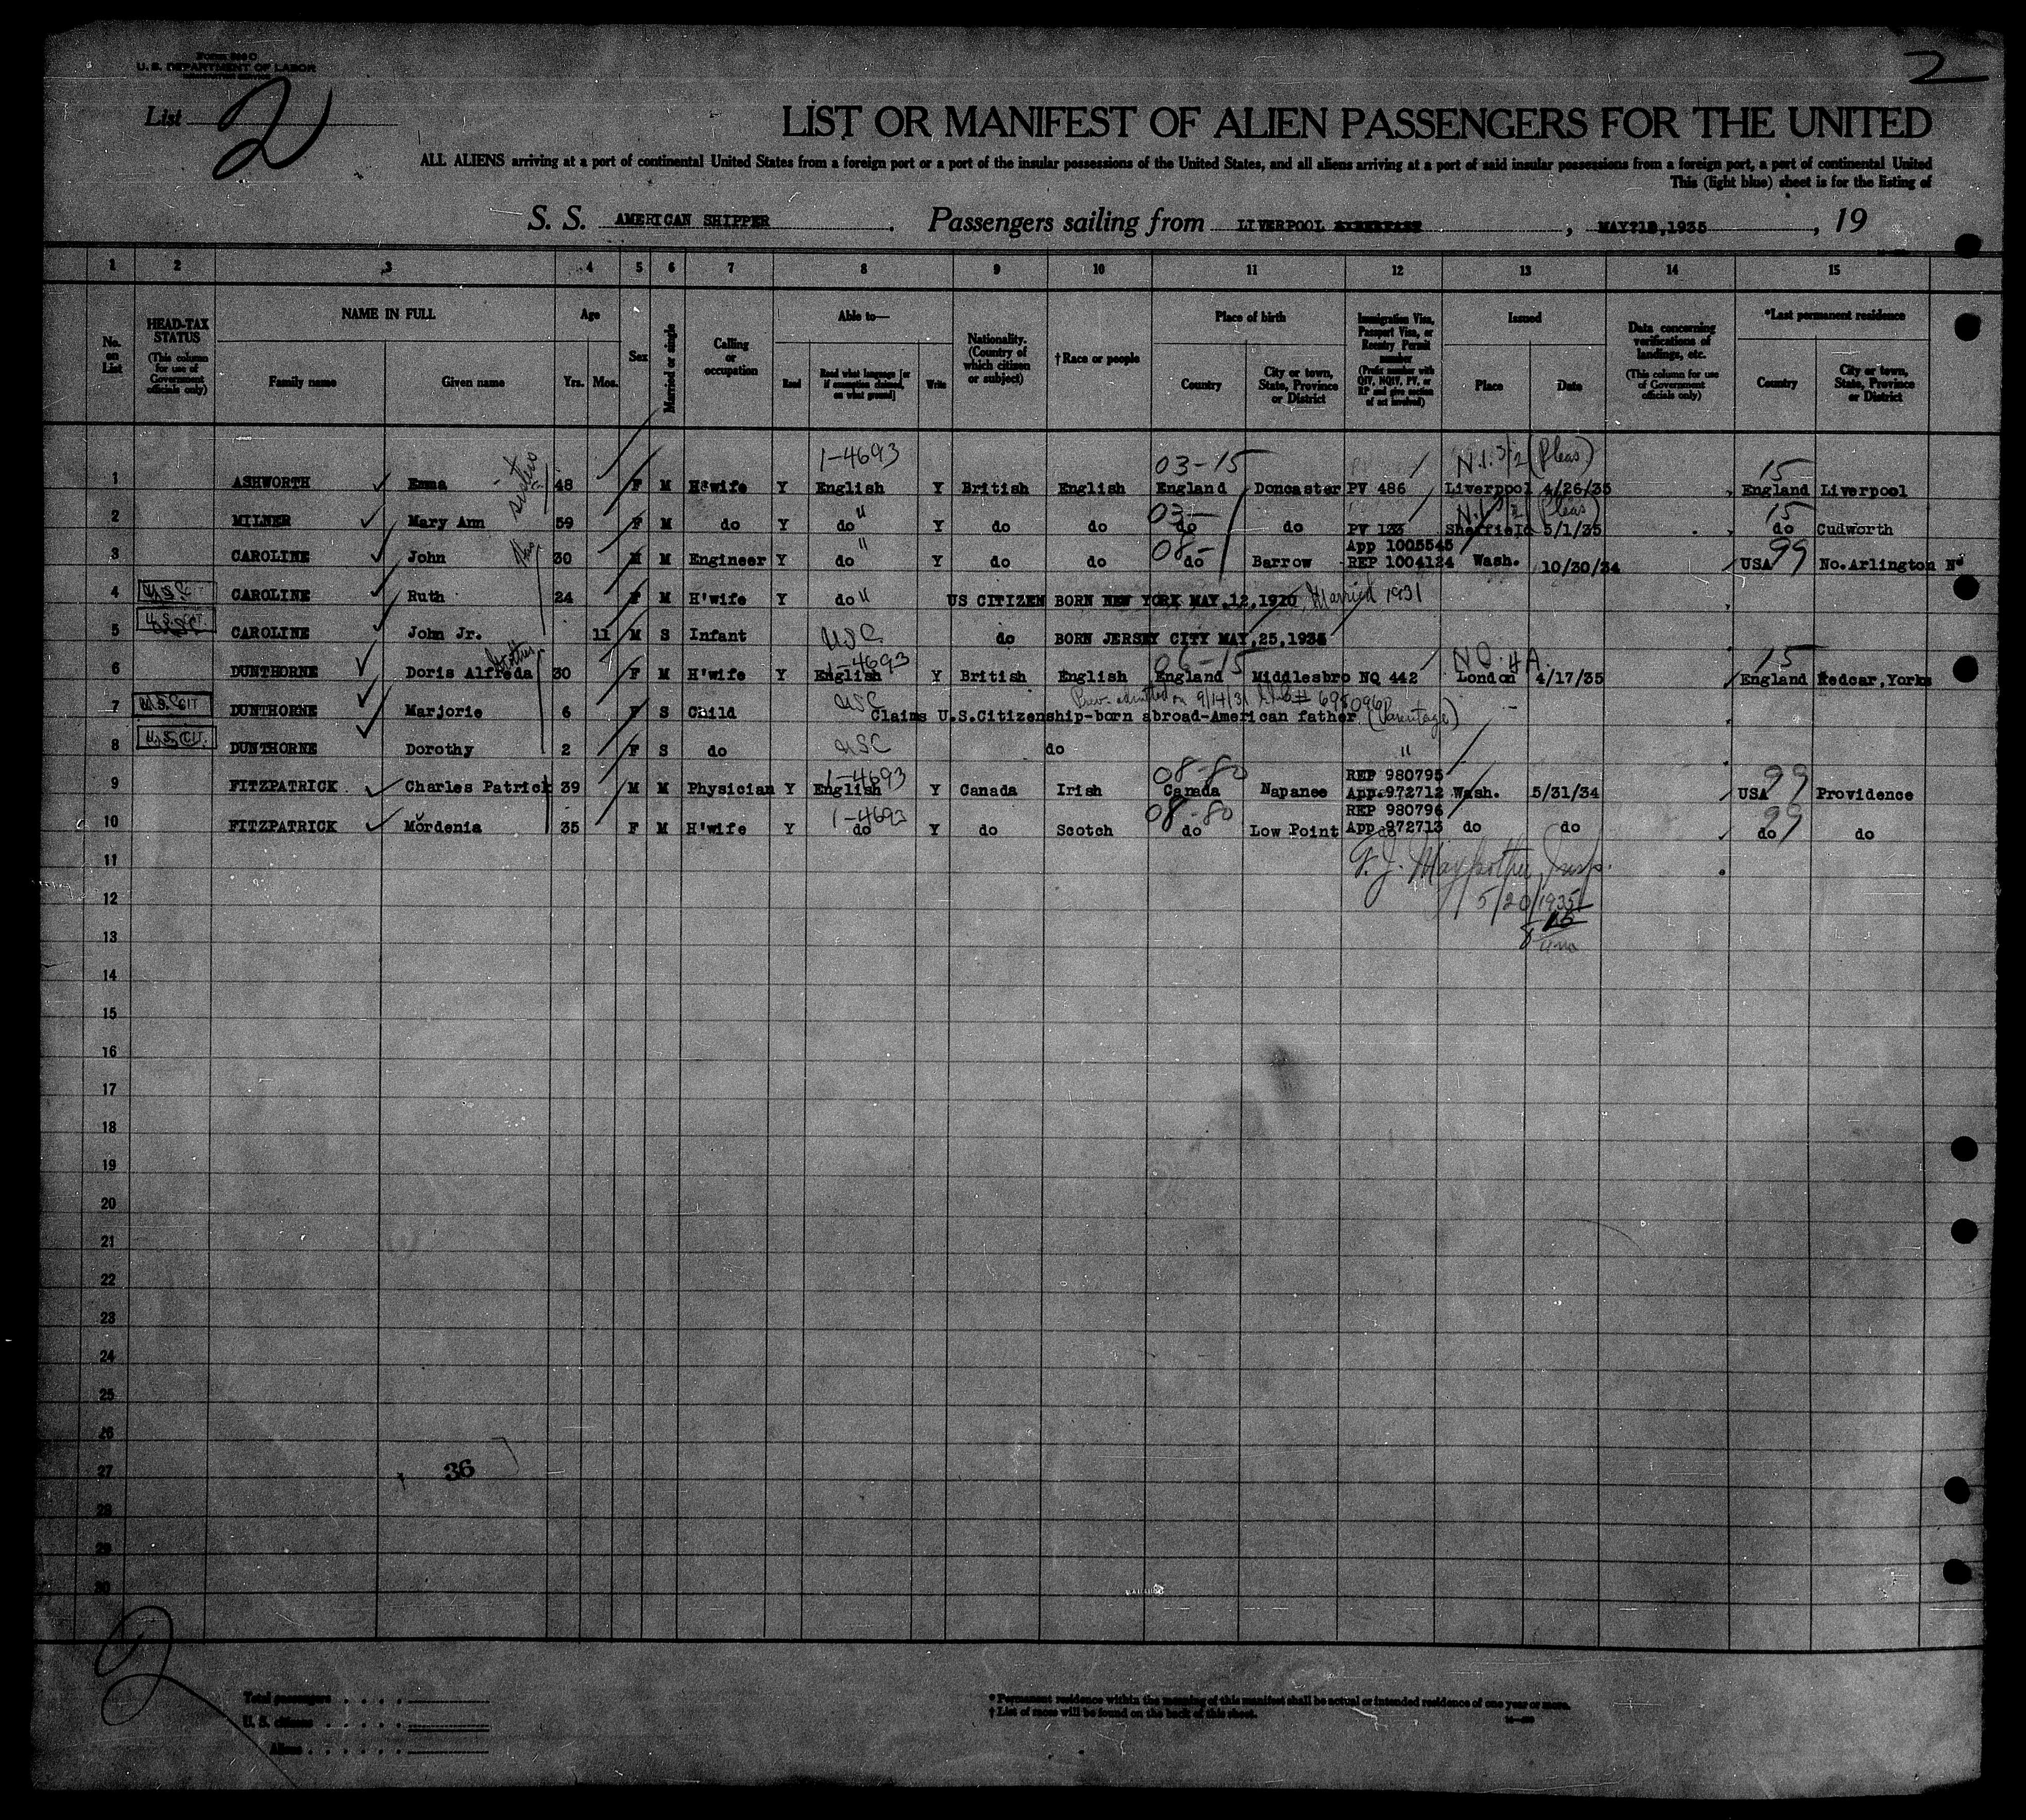 Form 500 C
U. S. DEPARTMENT OF LABOR
IMMIGRATION SERVICE
2
List 2
LIST OR MANIFEST OF ALIEN PASSENGERS FOR THE UNITED
ALL ALIENS arriving at a port of continental United States from a foreign port or a port of the insular possessions of the United States, and all aliens arriving at a port of said insular possessions from a foreign port, a port of continental United
This (light blue) sheet is for the listing of
S. S. AMERICAN SHIPPER . Passengers sailing from LIVERPOOL , MAY 1 ,1935 , 19
1 2 3 4 5 6 7 8 9 10 11 12 13 14 15
No. on List
HEAD-TAX STATUS (This column for use of Government officials only)
NAME IN FULL Family name Given name
Age Yrs. Mos.
Sex
Married or single
Calling or occupation
Able to— Read Read what language [or if exemption claimed, on what ground] Write
Nationality. (Country of which citizen or subject)
†Race or people
Place of birth Country City or town, State, Province or District
Immigration Visa, Passport Visa, or Reentry Permit number (Prefix number with QIV, NQIV, PV, or RP and give section of act involved)
Issued Place Date
Data concerning verifications of landings, etc. (This column for use of Government officials only)
*Last permanent residence Country City or town, State, Province or District
sisters 1-4693 03-15 N.I. 3/2 (Pleas) 15
1 ASHWORTH Emma 48 F M H'wife Y English Y British English England Doncaster PV 486 Liverpool 4/26/35 England Liverpool
03- N.I. 3/2 (Pleas) 15
2 MILNER Mary Ann 59 F M do Y do " Y do do do do PV 133 Sheffield 5/1/35 do Cudworth
08- App 1005545 99
3 CAROLINE John 30 M M Engineer Y do " Y do do do Barrow REP 1004124 Wash. 10/30/34 USA No. Arlington NJ
4 USC CAROLINE Ruth 24 F M H'wife Y do " US CITIZEN BORN NEW YORK MAY,12,1910, Married 1931
5 U. S. CIT. CAROLINE John Jr. 11 M S Infant USC do BORN JERSEY CITY MAY,25,1935
mother 1-4693 06-15 NQ. 4A. 15
6 DUNTHORNE Doris Alfreda 30 F M H'wife Y English Y British English England Middlesbro NQ 442 London 4/17/35 England Redcar, Yorks
USC Prev. admitted on 9/14/31 698096
7 U.S. CIT DUNTHORNE Marjorie 6 F S Child Claims U.S.Citizenship-born abroad-American father (Parentage)
8 U.S. CIT. DUNTHORNE Dorothy 2 F S do USC do "
1-4693 08-80 REP 980795 99
9 FITZPATRICK Charles Patrick 39 M M Physician Y English Y Canada Irish Canada Napanee App.972712 Wash. 5/31/34 USA Providence
1-4693 08-80 REP 980796 99
10 FITZPATRICK Mordenia 35 F M H'wife Y do Y do Scotch do Low Point App 972713 do do do do
11
Insp.
12
5/20/1935
13
14
15
16
17
18
19
20
21
22
23
24
25
26
27 36
28
29
30
Total passengers
U. S. citizens
Aliens
* Permanent residence within the meaning of this manifest shall be actual or intended residence of one year or more.
† List of races will be found on the back of this sheet.